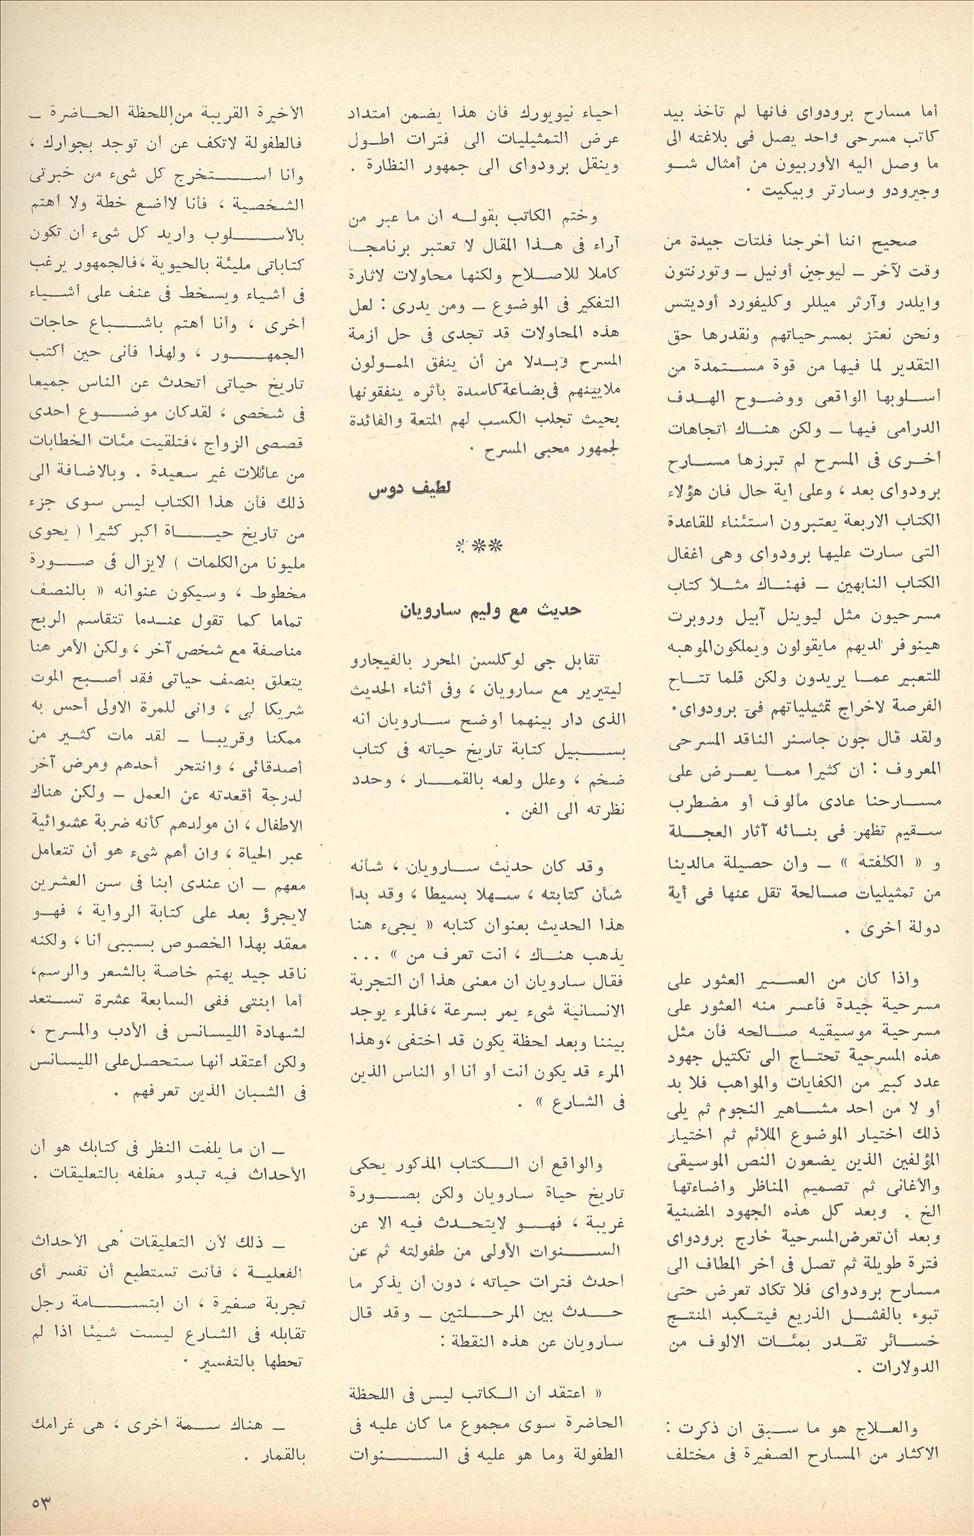 أما مسارح برودواى فانها لم تأخذ بيد
كاتب مسرحى واحد يصل فى بلاغته الى
ما وصل اليه الأوربيون من أمثال شو
وجيرودو وسارتر وبيكيت .
صحيح اننا أخرجنا فلتات جيدة من
وقت لآخر ـ ليوجين أونيل ـ وتورنتون
وايلدر وآرثر ميللر وكليفورد أوديتس
ونحن نعتز بمسرحياتهم ونقدرها حق
التقدير لما فيها من قوة مستمدة من
اسلوبها الواقعى ووضوح الهدف
الدرامى فيها ـ ولكن هناك اتجاهات
أخرى فى المسرح لم تبرزها مسارح
برودواى بعد ، وعلى اية حال فان هؤلاء
الكتاب الاربعة يعتبرون استثناء للقاعدة
التى سارت عليها برودواى وهى اغفال
الكتاب النابهين ـ فهناك مثلا كتاب
مسرحيون مثل ليوينل آبيل وروبرت
هينوفر لديهم مايقولون ويملكون الموهبه
للتعبير عما يريدون ولكن قلما تتاح
الفرصة لاخراج تمثيلياتهم فى برودواى .
ولقد قال جون جاسنر الناقد المسرحى
المعروف : ان كثيرا مما يعرض على
مسارحنا عادى مألوف أو مضطرب
سقيم تظهر فى بنائه آثار العجلة
و « الكلفته » ـ وان حصيلة مالدينا
من تمثيليات صالحة تقل عنها فى أية
دولة أخرى .
واذا كان من العسير العثور على
مسرحية جيدة فأعسر منه العثور على
مسرحية موسيقيه صالحه فأن مثل
هذه المسرحية تحتاج الى تكتيل جهود
عدد كبير من الكفايات والمواهب فلا بد
أو لا من احد مشاهير النجوم ثم يلى
ذلك اختيار الموضوع الملائم ثم اختيار
المؤلفين الذين يضعون النص الموسيقى
والأغانى ثم تصميم المناظر واضاءتها
الخ . وبعد كل هذه الجهود المضنية
وبعد أن تعرض المسرحية خارج برودواى
فترة طويلة ثم تصل فى أخر المطاف الى
مسارح برودواى فلا تكاد تعرض حتى
تبوء بالفشل الذريع فيتكبد المنتج
خسائر تقدر بمئات الالوف من
الدولارات .
والعلاج هو ما سبق ان ذكرت :
الاكثار من المسارح الصغيرة فى مختلف
احياء نيويورك فأن هذا يضمن امتداد
عرض التمثيليات الى فترات اطول
وينقل برودواى الى جمهور النظارة .
وختم الكاتب بقوله ان ما عبر من
آراء فى هذا المقال لا تعتبر برنامجا
كاملا للاصلاح ولكنها محاولات لاثارة
التفكير فى الموضوع ـ ومن يدرى : لعل
هذه المحاولات قد تجدى فى حل ازمة
المسرح وبدلا من أن ينفق الممولون
ملايينهم فى بضاعة كاسدة بأثره ينفقونها
بحيث تجلب الكسب لهم المتعة والفائدة
لجمهور محبى المسرح .
لطيف دوس
***
حديث مع وليم سارويان
تقابل جى لوكلسن المحرر بالفيجارو
ليتيرير مع سارويان ، وفى أثناء الحديث
الذى دار بينهما أوضح سارويان أنه
بسبيل كتابة تاريخ حياته فى كتاب
ضخم ، وعلل ولعه بالقمار ، وحدد
نظرته الى الفن .
وقد كان حديث سارويان ، شأنه
شأن كتابته ، سهلا بسيطا ، وقد بدأ
هذا الحديث بعنوان كتابه « يجىء هنا
يذهب هناك ، أنت تعرف من » ...
فقال سارويان ان معنى هذا أن التجربة
الانسانية شىء يمر بسرعة ، فالمرء يوجد
بيننا وبعد لحظة يكون قد اختفى ، وهذا
المرء قد يكون أنت أو أنا أو الناس الذين
فى الشارع » .
والواقع أن الكتاب المذكور يحكى
تاريخ حياة سارويان ولكن بصورة
غريبة ، فهو لايتحدث فيه الا عن
السنوات الأولى من طفولته ثم عن
احدث فترات حياته ، دون أن يذكر ما
حدث بين المرحلتين ـ وقد قال
سارويان عن هذه النقطة :
« اعتقد ان الكاتب ليس فى اللحظة
الحاضرة سوى مجموع ما كان عليه فى
الطفولة وما هو عليه فى السنوات
الأخيرة القريبة من اللحظة الحاضرة ـ
فالطفولة لاتكف عن أن توجد بجوارك ،
وأنا أستخرج كل شىء من خبرتى
الشخصية ، فأنا لاأضع خطة ولا أهتم
بالأسلوب واريد كل شىء أن تكون
كتاباتى مليئة بالحيوية ، فالجمهور يرغب
فى أشياء ويسخط فى عنف على أشياء
أخرى ، وأنا أهتم باشباع حاجات
الجمهور ، ولهذا فأنى حين أكتب
تاريخ حياتى أتحدث عن الناس جميعا
فى شخصى ، لقد كان موضوع احدى
قصصى الزواج ، فتلقيت مئات الخطابات
من عائلات غير سعيدة . وبالاضافة الى
ذلك فأن هذا الكتاب ليس سوى جزء
من تاريخ حياة اكبر كثيرا ( يحوى
مليونا من الكلمات ) لايزال فى صورة
مخطوط ، وسيكون عنوانه « بالنصف
تماما كما تقول عندما تتقاسم الربح
مناصفة مع شخص آخر ، ولكن الأمر هنا
يتعلق بنصف حياتى فقد أصبح الموت
شريكا لى ، وانى للمرة الاولى أحس به
ممكنا وقريبا ـ لقد مات كثير من
أصدقائى ، وانتحر أحدهم ومرض آخر
لدرجة أقعدته عن العمل ـ ولكن هناك
الاطفال ، ان مولدهم كأنه ضربة عشوائية
عبر الحياة ، وان أهم شىء هو أن تتعامل
معهم ـ ان عندى ابنا فى سن العشرين
لايجرؤ بعد على كتابة الرواية ، فهو
معقد بهذا الخصوص بسببى أنا ، ولكنه
ناقد جيد يهتم خاصة بالشعر والرسم ،
أما ابنتى ففى السابعة عشرة تستعد
لشهادة الليسانس فى الأدب والمسرح ،
ولكن أعتقد أنها ستحصل على الليسانس
فى الشبان الذين تعرفهم .
ـ ان ما يلفت النظر فى كتابك هو أن
الأحداث فيه تبدو مغلفه بالتعليقات .
ـ ذلك لأن التعليقات هى الأحداث
الفعلية ، فأنت تستطيع أن تفسر أى
تجربة صغيرة ، ان ابتسامة رجل
تقابله فى الشارع ليست شيئا اذا لم
تحطها بالتفسير .
ـ هناك سمة اخرى ، هى غرامك
بالقمار .
٥٣